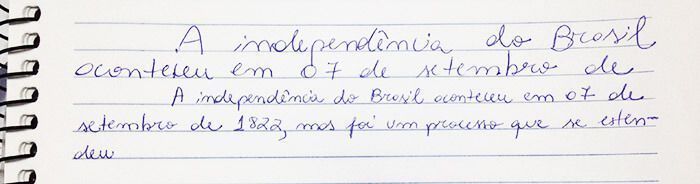 A independência do Brasil
aconteceu em 07 de setembro de
A independência do Brasil aconteceu em 07 de
setembro de 1822, mas foi um processo que se esten-
deu